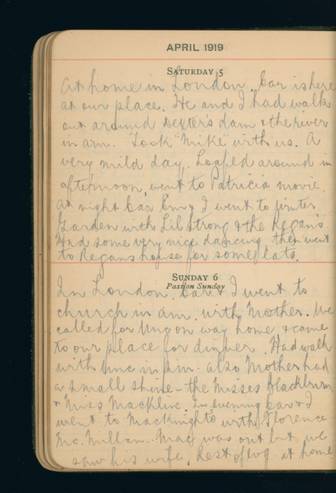 APRIL 1919
SATURDAY 5
At home in London. Car is here
at our place. He and I had walk
out around Dexter's dam & the river
in a.m. Took Mike with us. A
very mild day. Loafed around in
afternoon, went to Patricia movie
at night. Car & I went to Winter
Garden with Lil Strong & the Regan's.
Had some very nice dancing, then went
to Regans house for some eats.
SUNDAY 6
Passion Sunday
In London. Car & I went to
church in a.m. with Mother. We
called for on way home & came
to our place for dinner. Had walk
with in p.m. also Mother had
a small shine - the Misses Blackburn
& Miss Macklin. In evening Car & I
went to with Florence
Mc Millan. Mac was out but we
saw his wife. Rest of evg at home